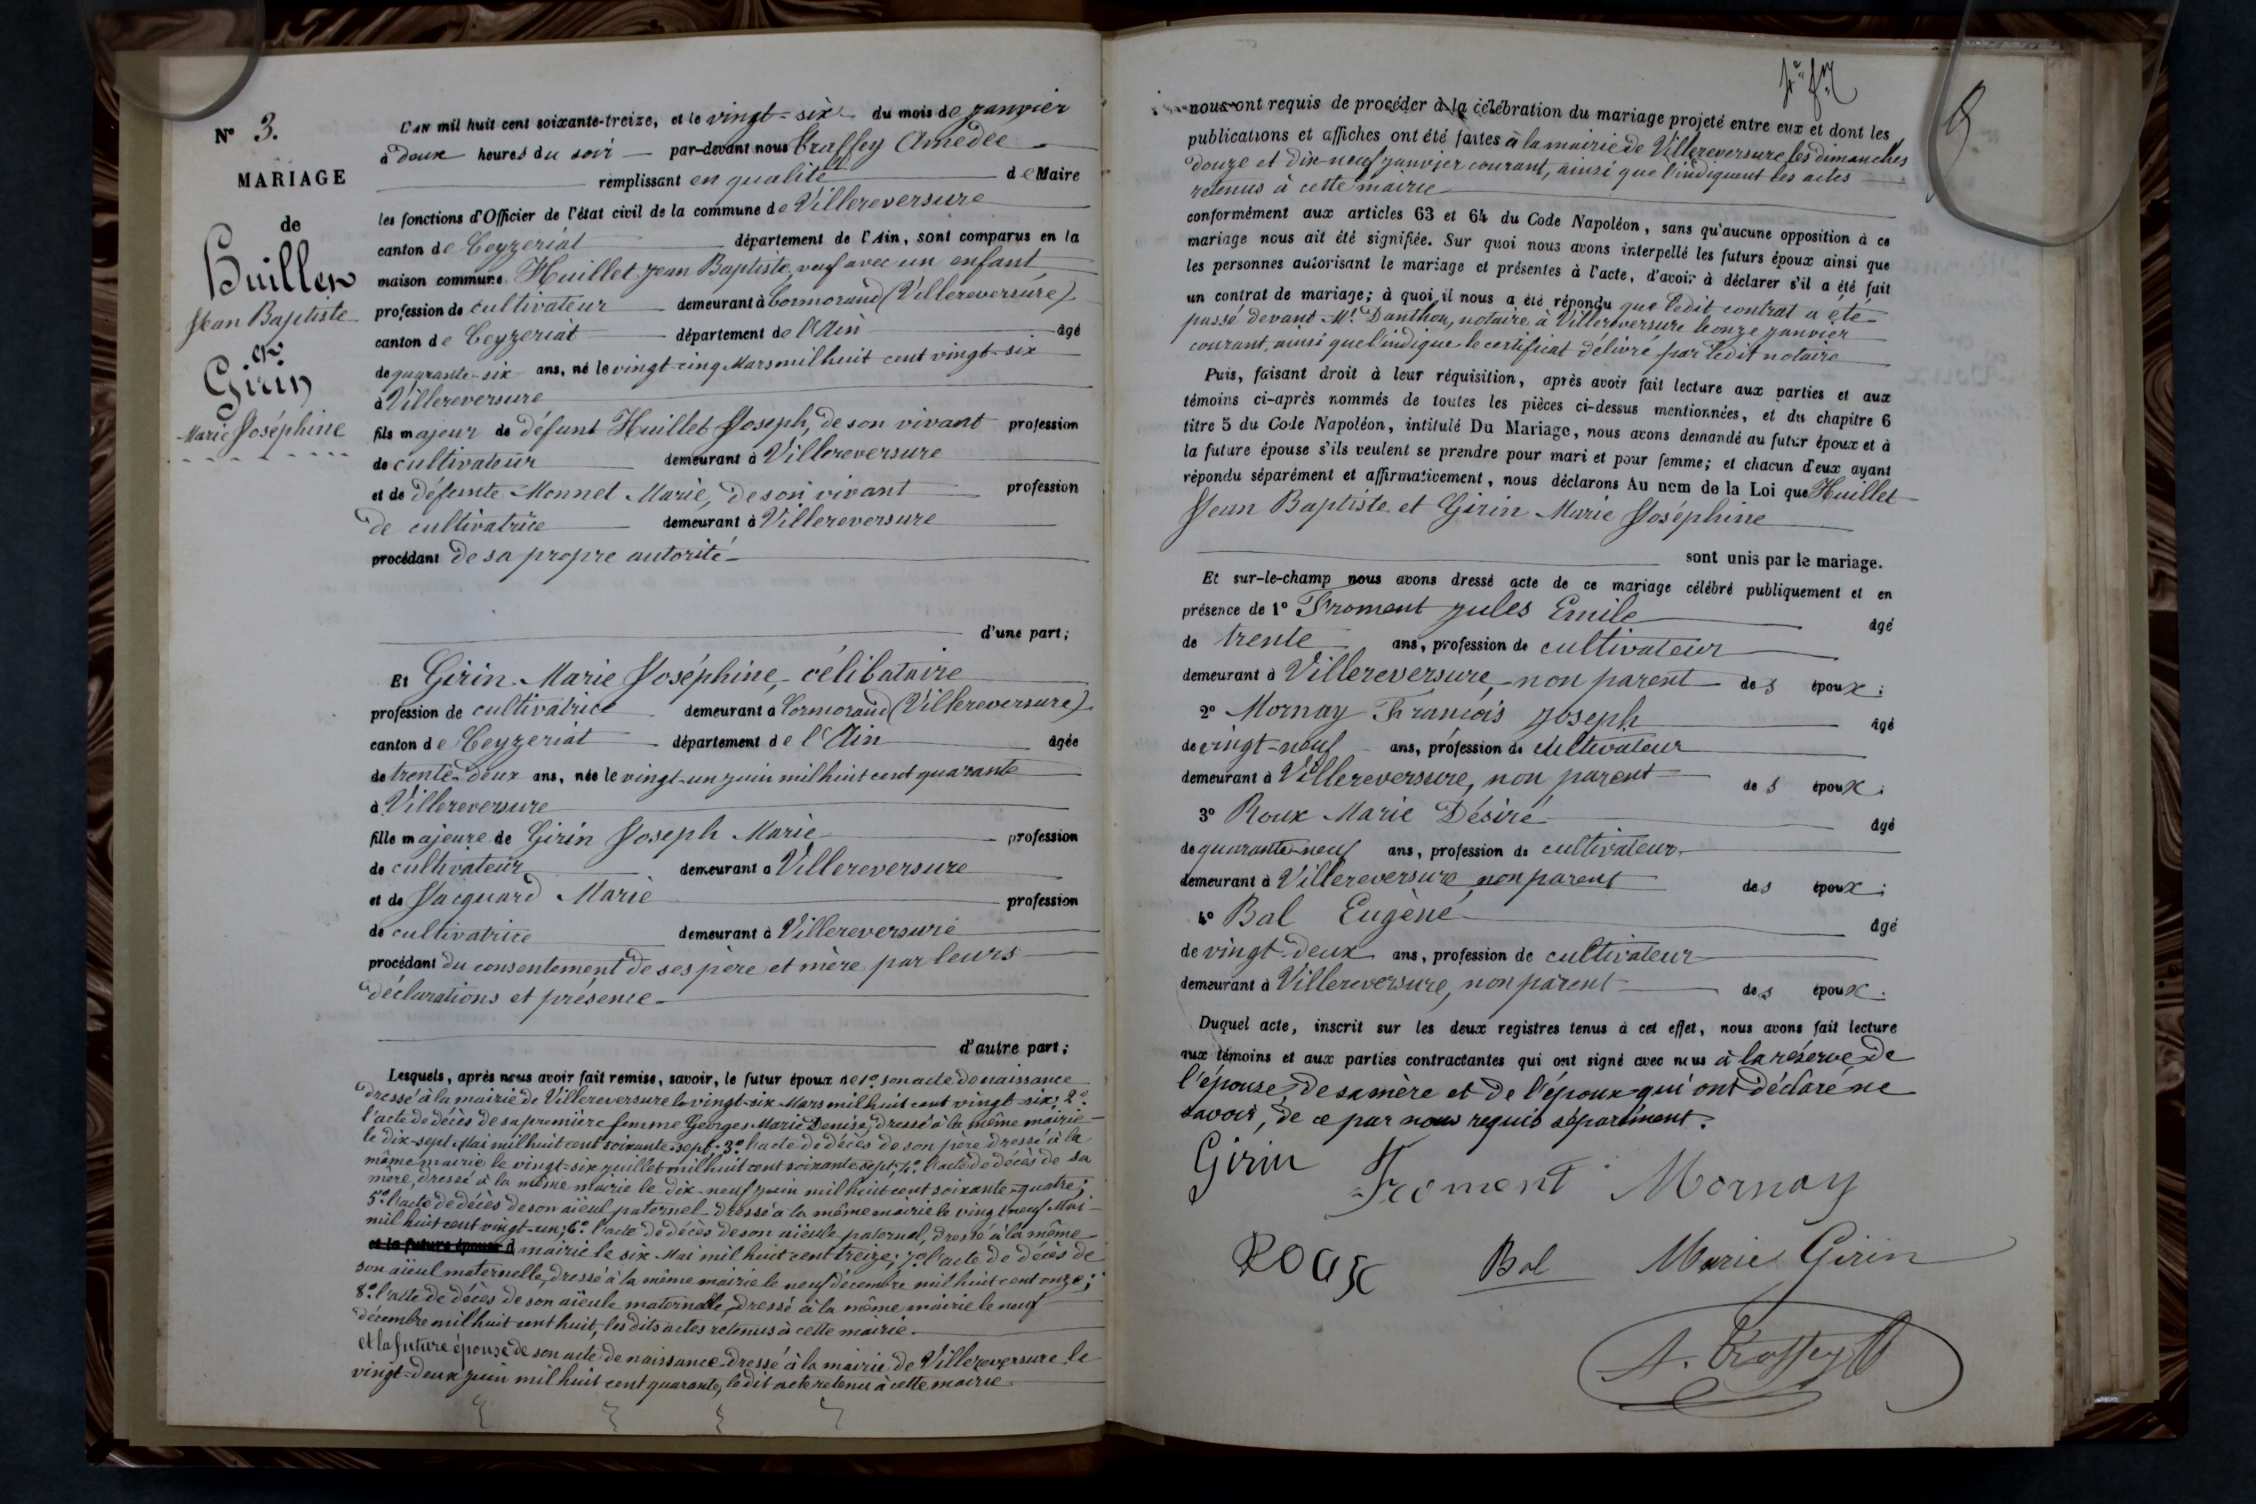 N° 3.
MARIAGE
de
Huillet
Jean Baptiste
et
Girin
Marie Joséphine
L'an mil huit cent soixante-treize, et le vingt-six du mois de janvier
à deux heures du soir par-devant nous Traffey Amédée
remplissant en qualité de Maire
les fonctions d'Officier de l'état civil de la commune de Villereversure
canton de Ceyzériat département de l'Ain, sont comparus en la
maison commune Huillet Jean Baptiste, veuf avec un enfant
profession de cultivateur demeurant à Cormoraud (Villereversure)
canton de Ceyzériat département de l'Ain âgé
de quarante-six ans, né le vingt-cinq Mars mil huit cent vingt-six
à Villereversure
fils majeur de défunt Huillet Joseph, de son vivant profession
de cultivateur demeurant à Villereversure
et de défunte Monnet Marie, de son vivant profession
de cultivatrice demeurant à Villereversure
procédant de sa propre autorité
d'une part;
Et Girin Marie Joséphine, célibataire
profession de cultivatrice demeurant à Cormoraud (Villereversure)
canton de Ceyzériat département de l'Ain âgée
de trente-deux ans, née le vingt-un juin mil huit cent quarante
à Villereversure
fille majeure de Girin Joseph Marie profession
de cultivateur demeurant à Villereversure
et de Jacquard Marie profession
de cultivatrice demeurant à Villereversure
procédant du consentement de ses père et mère par leurs
déclarations et présence
d'autre part;
Lesquels, après nous avoir fait remise, savoir, le futur époux de 1° son acte de naissance
dressé à la mairie de Villereversure le vingt-six Mars mil huit cent vingt-six; 2°
l'acte de décès de sa première femme Georges Marie Denise, dressé à la même mairie
le dix-sept Mai mil huit cent soixante-sept; 3° l'acte de décès de son père dressé à la
même mairie le vingt-six juillet mil huit cent soixante sept; 4° l'acte de décès de sa
mère, dressé à la même mairie le dix-neuf juin mil huit cent soixante-quatre;
5° l'acte de décès de son aïeul paternel dressé à la même mairie le vingt neuf Mai
mil huit cent vingt-un; 6° l'acte de décès de son aïeule paternel, dressé à la même
et la future épouse d mairie le six Mai mil huit cent treize; 7° l'acte de décès de
son aïeul maternelle, dressé à la même mairie le neuf décembre mil huit cent onze;
8° l'acte de décès de son aïeule maternelle, dressé à la même mairie le neuf
décembre mil huit cent huit, les dits actes retenus à cette mairie.
et la future épouse de son acte de naissance dressé à la mairie de Villereversure le
vingt-deux juin mil huit cent quarante, ledit acte retenu à cette mairie
nous ont requis de procéder à la célébration du mariage projeté entre eux et dont les
publications et affiches ont été faites à la mairie de Villereversure les dimanches
douze et dix-neuf janvier courant, ainsi que l'indiquent les actes
retenus à cette mairie
conformément aux articles 63 et 64 du Code Napoléon, sans qu'aucune opposition à ce
mariage nous ait été signifiée. Sur quoi nous avons interpellé les futurs époux ainsi que
les personnes autorisant le mariage et présentes à l'acte, d'avoir à déclarer s'il a été fait
un contrat de mariage; à quoi il nous a été répondu que ledit contrat a été
passé devant Mt Danthon, notaire à Villereversure le onze janvier
courant, ainsi que l'indique le certificat délivré par ledit notaire
Puis, faisant droit à leur réquisition, après avoir fait lecture aux parties et aux
témoins ci-après nommés de toutes les pièces ci-dessus mentionnées, et du chapitre 6
titre 5 du Code Napoléon, intitulé Du Mariage, nous avons demandé au futur époux et à
la future épouse s'ils veulent se prendre pour mari et pour femme; et chacun d'eux ayant
répondu séparément et affirmativement, nous déclarons Au nom de la Loi que Huillet
Jean Baptiste et Girin Marie Joséphine
sont unis par le mariage.
Et sur-le-champ nous avons dressé acte de ce mariage célébré publiquement et en
présence de 1° Froment Jules Emile âgé
de trente ans, profession de cultivateur
demeurant à Villereversure, non parent des époux;
2° Mornay François Joseph âgé
de vingt-neuf ans, profession de cultivateur
demeurant à Villereversure, non parent des époux;
3° Roux Marie Désiré âgé
de quarante-neuf ans, profession de cultivateur
demeurant à Villereversure non parent des époux;
4° Bal Eugène âgé
de vingt-deux ans, profession de cultivateur
demeurant à Villereversure, non parent des époux.
Duquel acte, inscrit sur les deux registres tenus à cet effet, nous avons fait lecture
aux témoins et aux parties contractantes qui ont signé avec nous à la réserve de
l'épouse, de sa mère et de l'époux qui ont déclaré ne
savoir, de ce par nous requis séparément.
Girin Froment Mornay
Roux Bal Marie Girin
A. Traffey